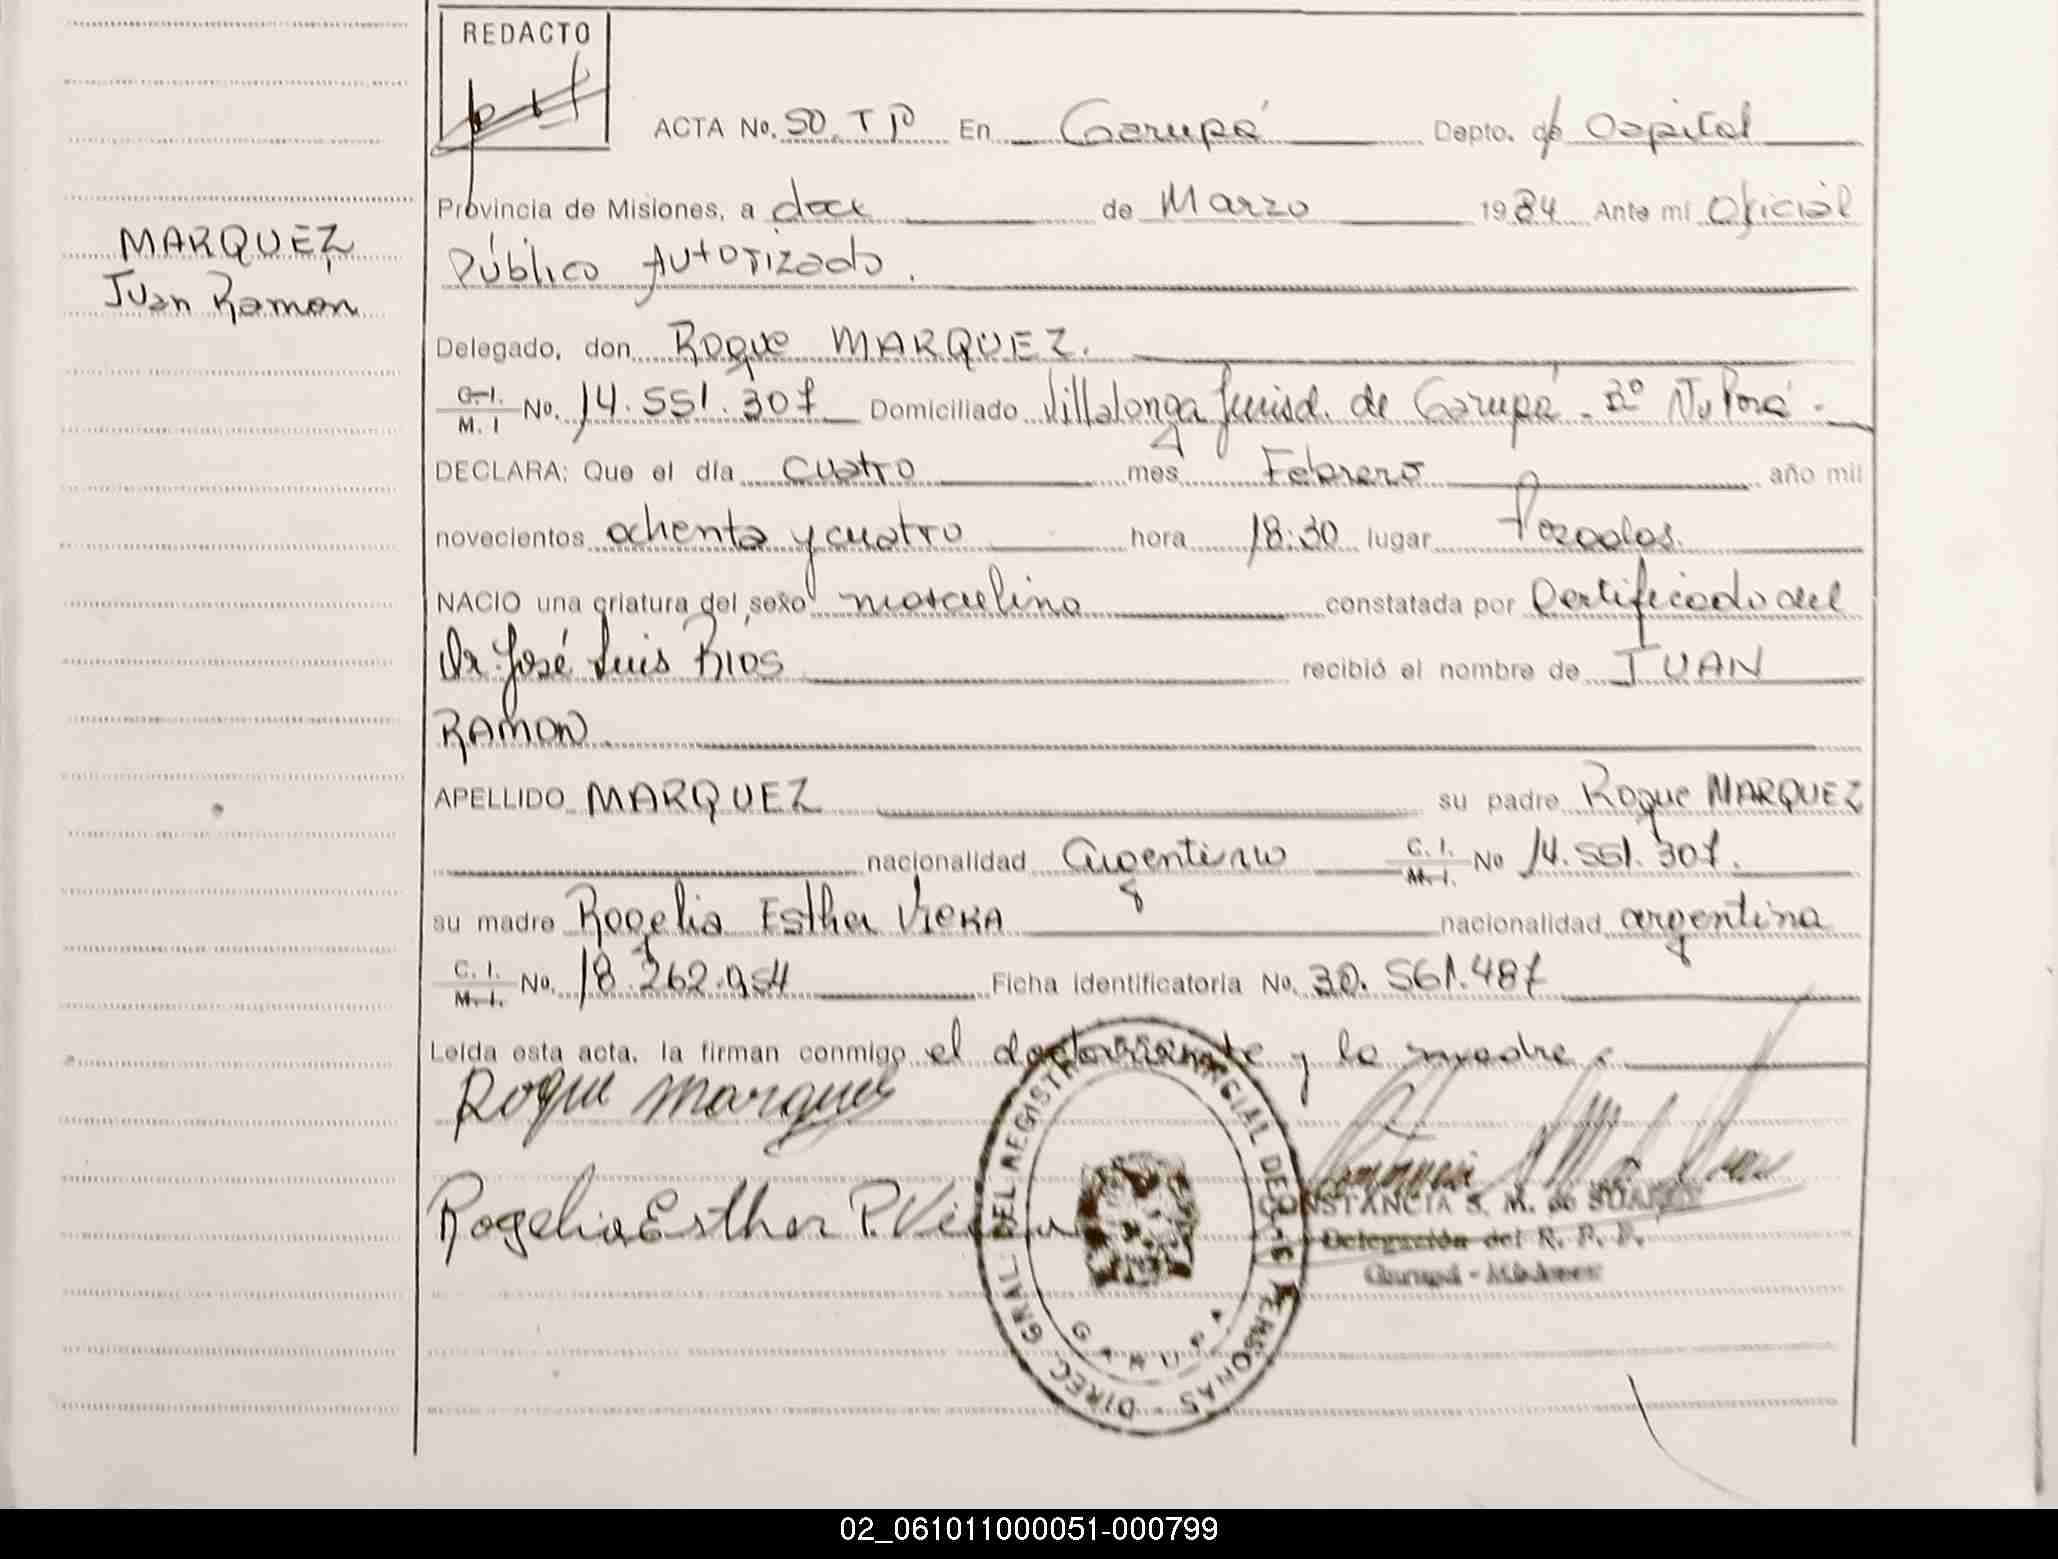 REDACTO
ACTA No. 50. T Iº En Garupá Depto. de Capital
Provincia de Misiones, a doce de Marzo 1984 Ante mi Oficial
MARQUEZ
Juan Ramón
Público Autorizado.
Delegado, don Roque MARQUEZ.
C. I. M. I No. 14.551.307 Domiciliado Villalonga Jurisd. de Garupá - Bº Ñu Porá -
DECLARA: Que el día cuatro mes Febrero año mil
novecientos ochenta y cuatro hora 18:30 lugar Posadas.
NACIO una criatura del sexo masculino constatada por Certificado del
Dr. José Luis Ríos recibió el nombre de JUAN
RAMON
APELLIDO MARQUEZ su padre Roque MARQUEZ
nacionalidad argentino C. I. M. I. No 14.551.307.
su madre Rogelia Esther VIERA nacionalidad argentina
C. I. M. I. No. 18.262.954 Ficha identificatoria No. 30.561.487
Leída esta acta, la firman conmigo el declarante y la madre.
Roque Marquez
Rogelia Esther P. Viera
DIREC. GRAL. DEL REGISTRO PROVINCIAL DE LAS PERSONAS
GARUPA
CONSTANCIA S. M. de SUAREZ
Delegación del R. P. P.
Garupá - Misiones
02_061011000051-000799